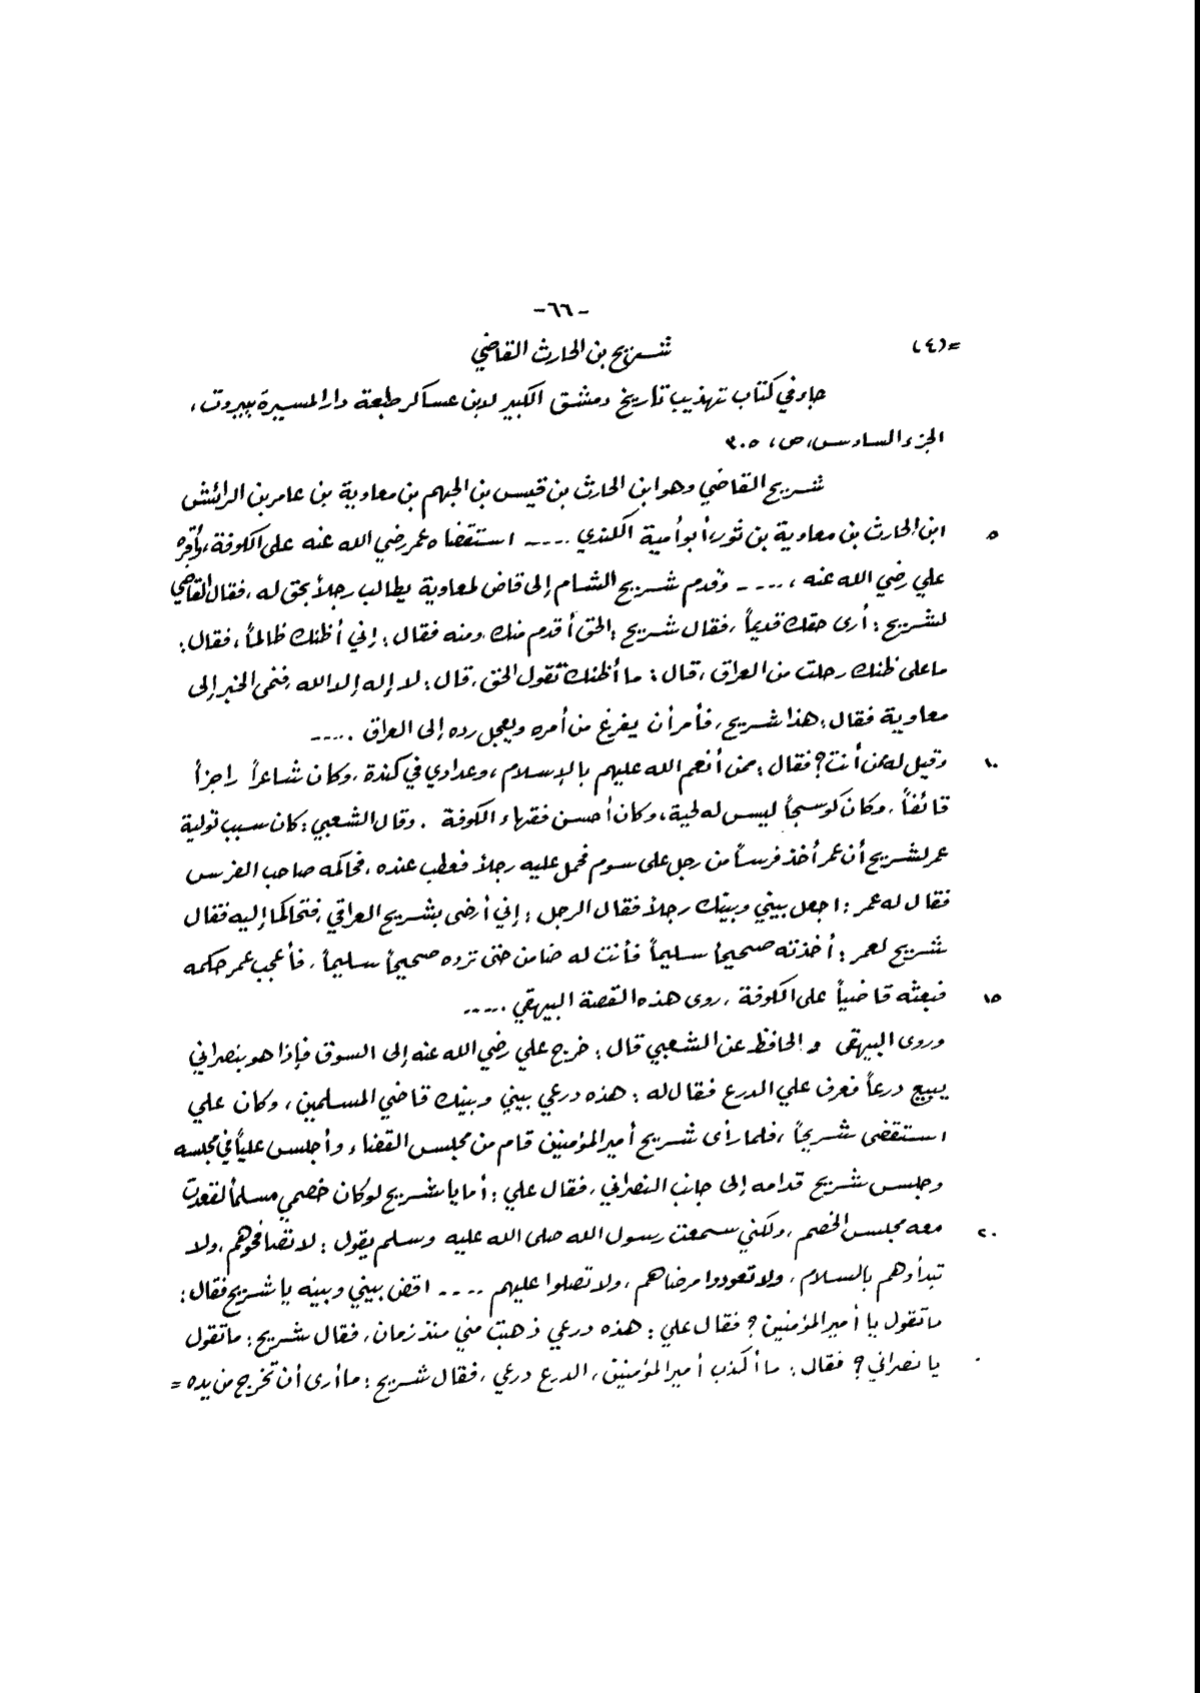 -٦٦-
=(٤)
شريح بن الحارث القاضي
جاء في كتاب تهذيب تاريخ دمشق الكبير لابن عساكر طبعة دار المسيرة بيروت،
الجزء السادس، ص، ٣٠٥
شريح القاضي وهو ابن الحارث بن قيس بن الجهم بن معاوية بن عامر بن الرائش
٥ ابن الحارث بن معاوية بن ثور، أبو أمية الكندي .... استقضاه عمر رضي الله عنه على الكوفة، وأقره
علي رضي الله عنه، .... وقدم شريح الشام إلى قاض لمعاوية يطالب رجلاً بحق له، فقال القاضي
لشريح: أرى حقك قديماً، فقال شريح: الحق أقدم منك ومنه فقال: إني أظنك ظالماً، فقال:
ما على ظنك رحلت من العراق، قال: ما أظنك تقول الحق، قال: لا إله إلا الله، فنمى الخبر إلى
معاوية فقال: هذا شريح، فأمر أن يفرغ من أمره ويعجل رده إلى العراق .....
١٠ وقيل له ممن أنت؟ فقال: ممن أنعم الله عليهم بالإسلام، وعدادي في كندة، وكان شاعراً راجزاً
قائفاً، وكان كوسجاً ليس له لحية، وكان أحسن فقهاء الكوفة. وقال الشعبي: كان سبب تولية
عمر لشريح أن عمر أخذ فرساً من رجل على سوم فحمل عليه رجلاً فعطب عنده، فحاكمه صاحب الفرس
فقال له عمر: اجعل بيني وبينك رجلاً فقال الرجل: إني أرضى بشريح العراقي، فتحاكما إليه فقال
شريح لعمر: أخذته صحيحاً سليماً فأنت له ضامن حتى ترده صحيحاً سليماً، فأعجب عمر حكمه
١٥ فبعثه قاضياً على الكوفة، روى هذه القصة البيهقي .....
وروى البيهقي والحافظ عن الشعبي قال: خرج علي رضي الله عنه إلى السوق فإذا هو بنصراني
يبيع درعاً فعرف علي الدرع فقال له: هذه درعي بيني وبينك قاضي المسلمين، وكان علي
استقضى شريحاً، فلما رأى شريح أمير المؤمنين قام من مجلس القضاء وأجلس علياً في مجلسه
وجلس شريح قدامه إلى جانب النصراني، فقال علي: أما يا شريح لو كان خصمي مسلماً لقعدت
٢٠ معه مجلس الخصم، ولكني سمعت رسول الله صلى الله عليه وسلم يقول: لا تصافحوهم، ولا
تبدأوهم بالسلام، ولا تعودوا مرضاهم، ولا تصلوا عليهم .... اقض بيني وبينه يا شريح فقال:
ما تقول يا أمير المؤمنين؟ فقال علي: هذه درعي ذهبت مني منذ زمان، فقال شريح: ما تقول
يا نصراني؟ فقال: ما أكذب أمير المؤمنين، الدرع درعي، فقال شريح: ما أرى أن تخرج من يده =